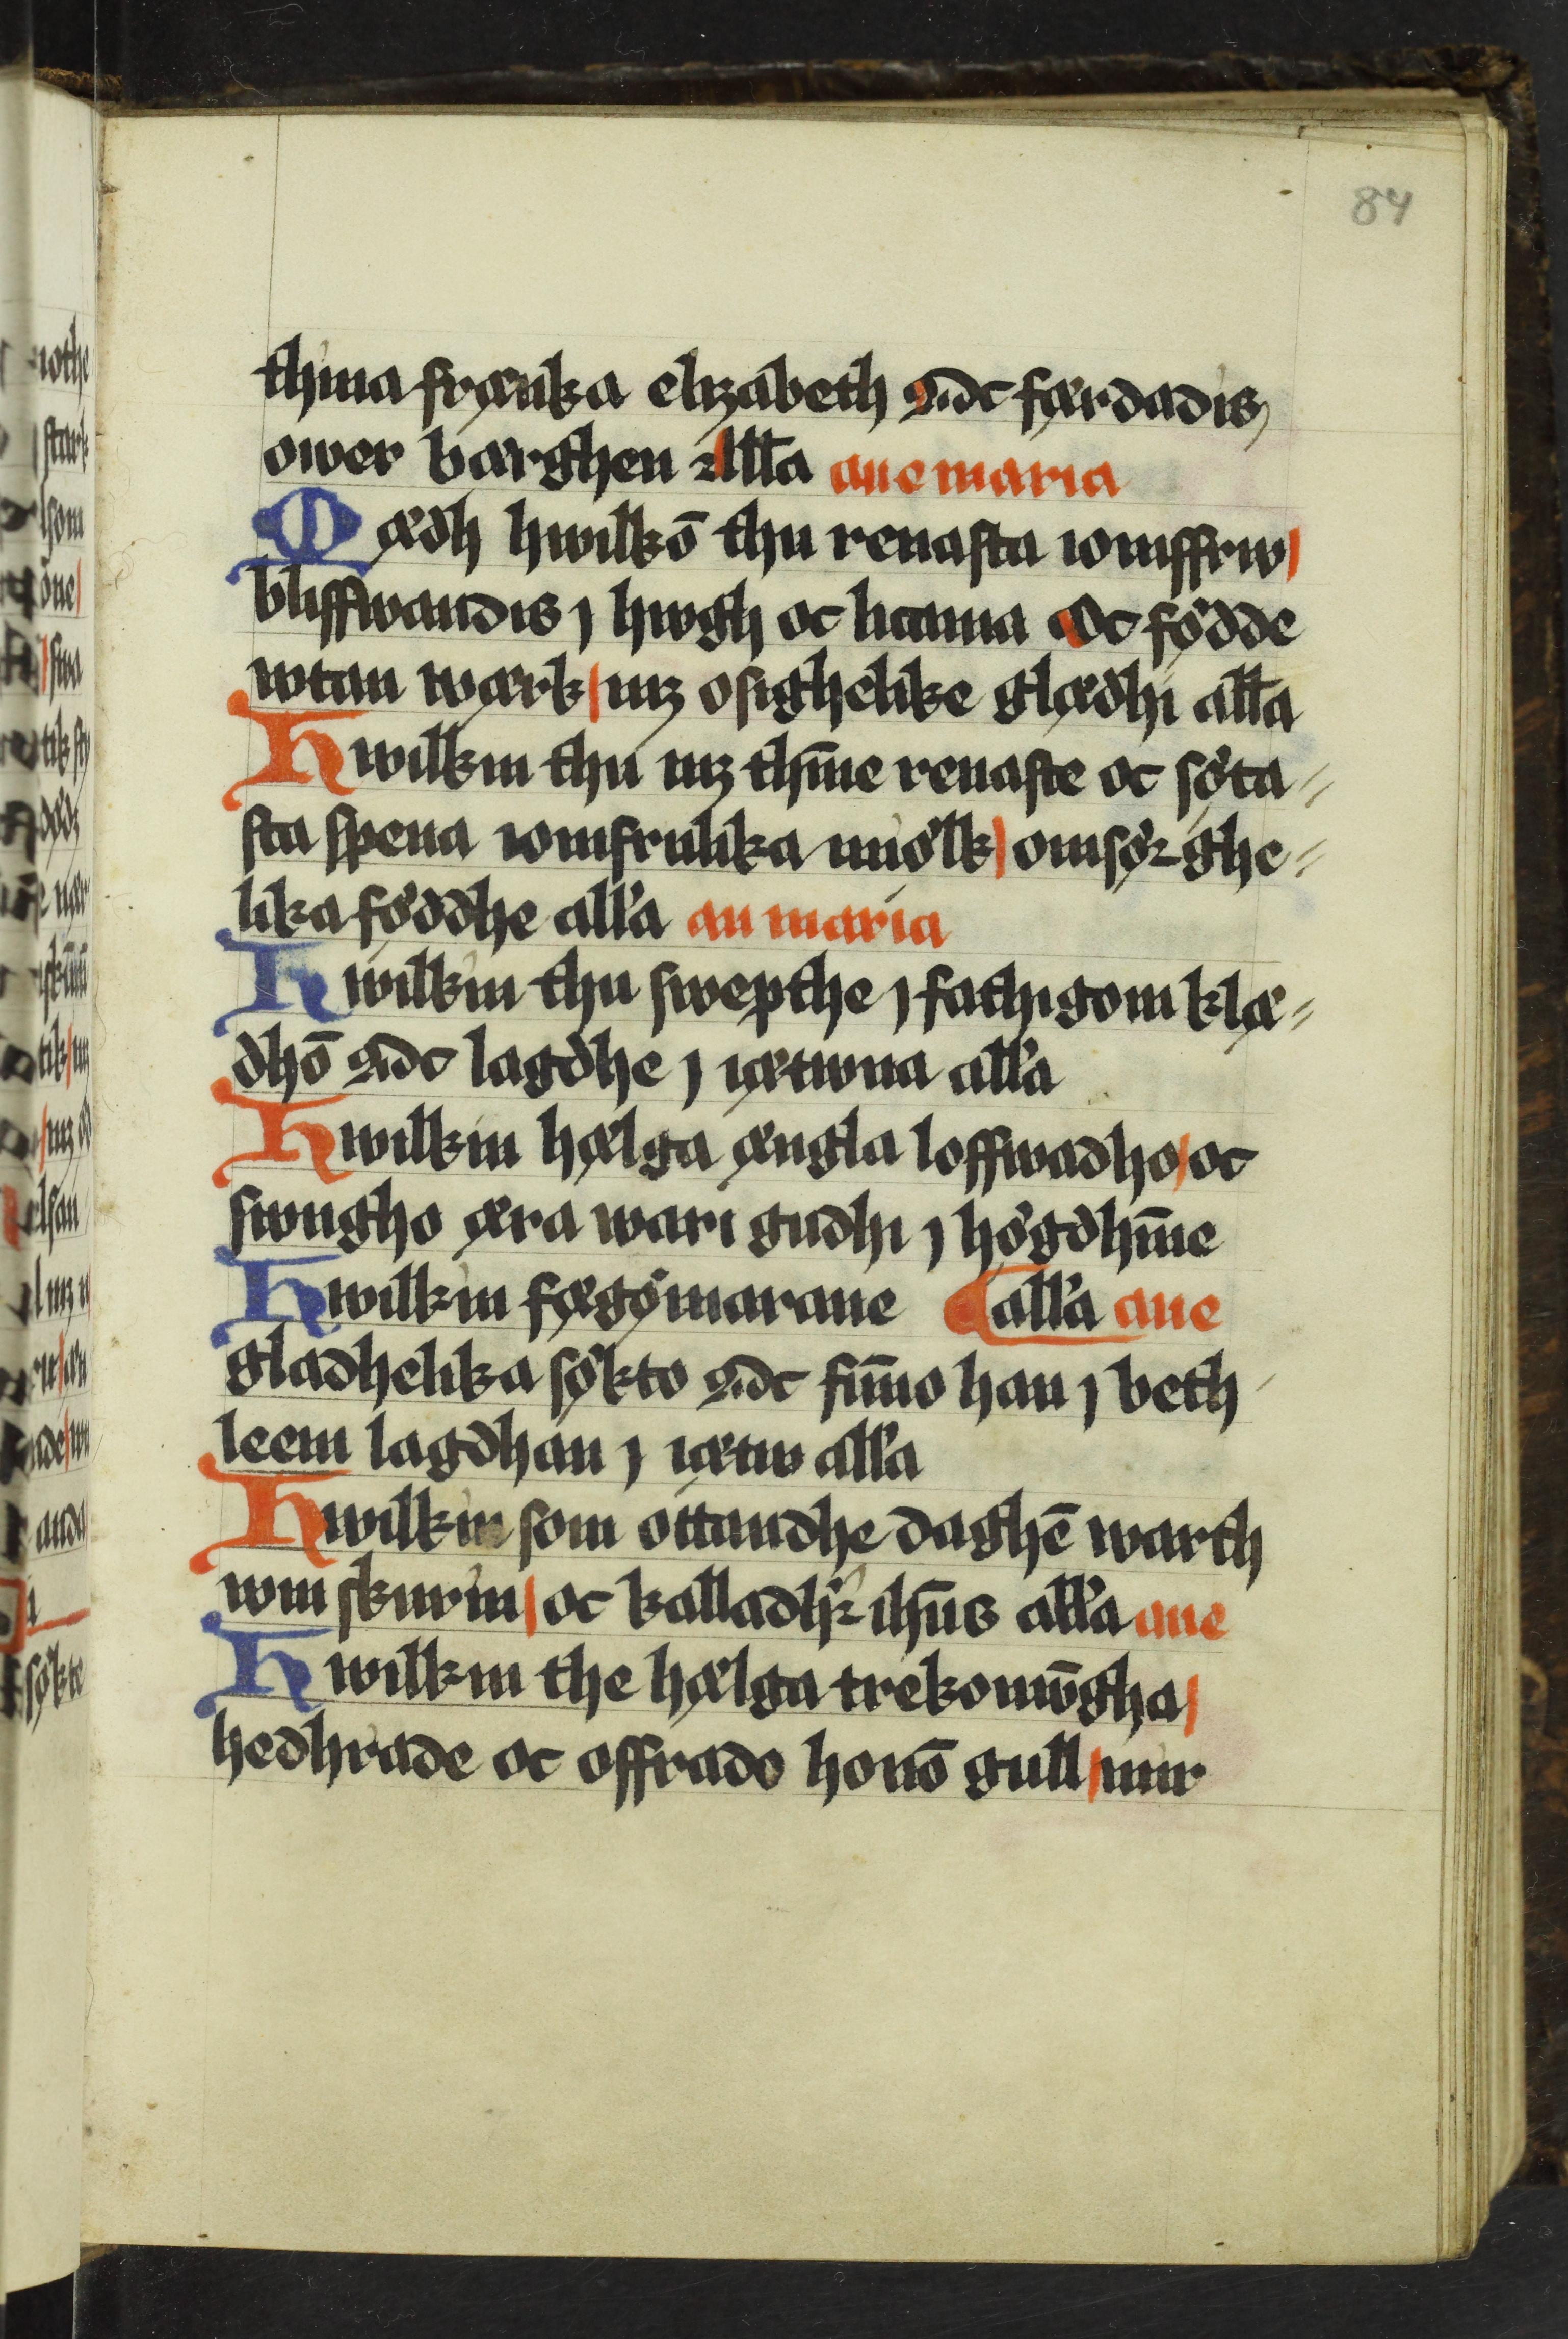 84
thina frænka elizabeth Oc færdadis
ower bærghen Alla aue maria
Mædh hwilkō thu renasta iomffrw
bliffwandis j hwgh oc licama Oc födde
wtan wærk mz osighelike glædhi alla
Hwilkin thu mz thīne renaste oc söta-
sta spena iomfrulika miölk omsorghe-
lika föddhe alla au maria
Hwilkin thu swepthe j fathigom klæ-
dhō Oc lagdhe j iætwna alla
Hwilkin hælga ængla loffwadho oc
swngho æra wari gudhi j högdhīne
Hwilkin fægömarane alla aue
gladhelika sökto Oc fūno han j beth
leem lagdhan j iætw alla
Hwilkin som ottandhe daghē warth
wmskurin oc kalladhr ihūs alla aue
Hwilkin the hælga trekonwgha
hedhrade oc offrado honō gull mir